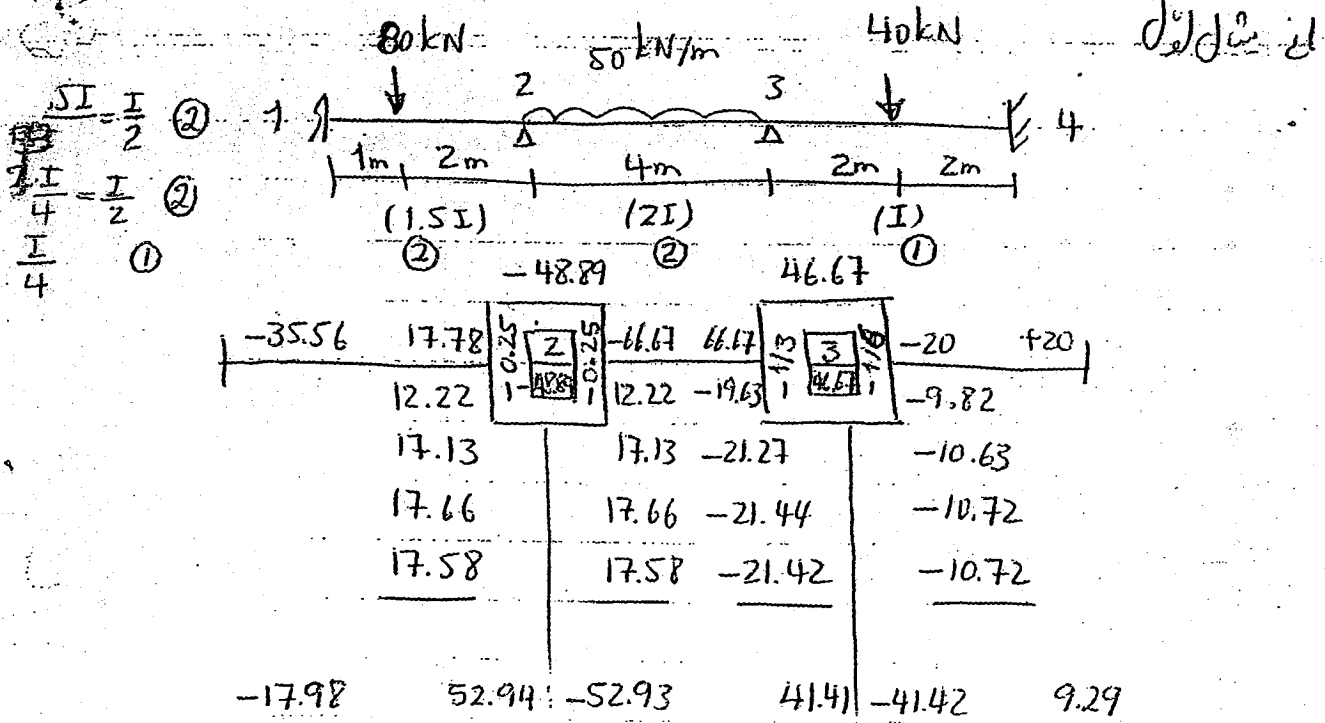 80 kN 50 kN/m 40 kN
.5I = I/2 ② 1 2 3 4
I/4 = I/2 ②
1m 2m 4m 2m 2m
I/4 ① (1.5I) (2I) (I)
② ② ①
-48.89 46.67
-35.56 17.78 -0.25 2 -0.25 -66.67 66.67 -1/3 3 -1/6 -20 +20
12.22 -48.89 12.22 -19.63 46.67 -9.82
17.13 17.13 -21.27 -10.63
17.66 17.66 -21.44 -10.72
17.58 17.58 -21.42 -10.72
-17.98 52.94 -52.93 41.41 -41.42 9.29